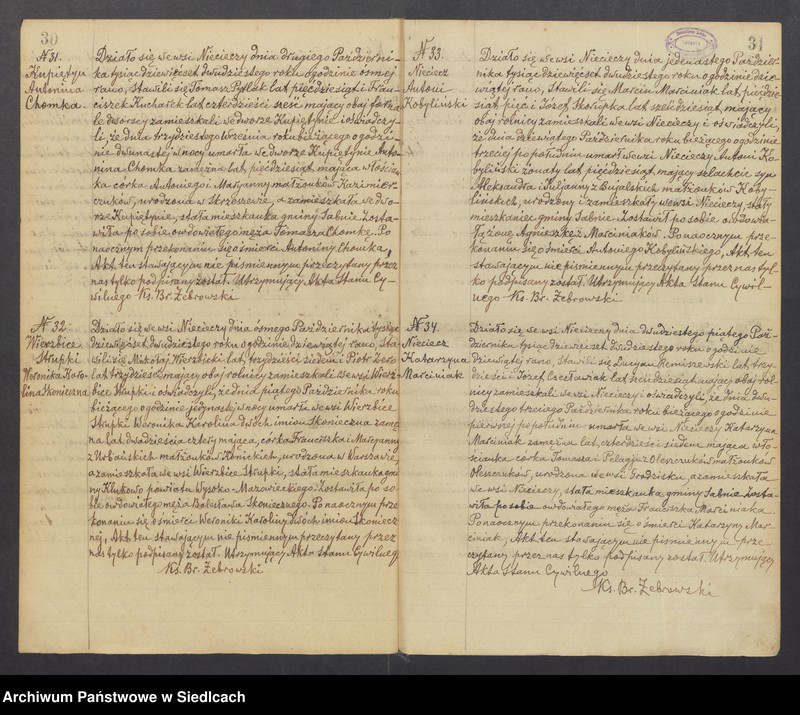 30
N 31.
Kupiętyn
Antonina
Chomka.
Działo się we wsi Niecieczy dnia drugiego Październi-
ka tysiąc dziewięćset dwudziestego roku o godzinie ósmej
rano, Stawili się Tomasz Pytlak lat pięćdziesiąt i Fran-
ciszek Kucharek lat czterdzieści sześć mający obaj forna-
le dworscy zamieszkali we dworze Kupiętynie i oświadczy-
li, że dnia trzydziestego Września roku bieżącego o godzi-
nie dwunastej w nocy umarła we dworze Kupiętynie Anto-
nina Chomka zamężna lat pięćdziesiąt mająca włościan
ka córka Antoniego i Maryanny małżonków Kazimier-
czuków, urodzona w Skrzeszewie, a zamieszkała we dwo-
rze Kupiętynie, stała mieszkanka gminy Sabnie. Zosta-
wiła po sobie owdowiałego męża Tomasza Chomkę. Po
naocznym przekonaniu się o śmierci Antoniny Chomka,
Akt ten stawającym nie piśmiennym przeczytany przez
nas tylko podpisany został. Utrzymujący Akta Stanu Cy-
wilnego Ks. Br. Żebrowski
N 32.
Wierzbice
Strupki
Weronika Karo-
lina Skonieczna
Działo się we wsi Niecieczy dnia ósmego Października tysiąc
dziewięćset dwudziestego roku o godzinie dziewiątej rano, Sta-
wili się Mikołaj Wierzbicki lat trzydzieści siedem i Piotr
lat trzydzieści mający obaj rolnicy zamieszkali we wsi Wierz-
bice Strupki i oświadczyli, że dnia piątego Października roku
bieżącego o godzinie jedynastej w nocy umarła we wsi Wierzbice
Strupki Weronika Karolina dwóch imion Skonieczna zamę-
żna lat dwadzieścia cztery mająca, córka Franciszka i Maryanny
z Urbańskich małżonków urodzona w Warszawie,
a zamieszkała we wsi Wierzbice Strupki, stała mieszkanka gmi-
ny Klukowo powiatu Wysoko-Mazowieckiego. Zostawiła po so-
bie owdowiałego męża Bolesława Skoniecznego. Po naocznym prze-
konaniu się o śmierci Weroniki Karoliny dwóch imion Skoniecz
nej, Akt ten stawającym nie piśmiennym przeczytany przez
nas tylko podpisany został. Utrzymujący Akta Stanu Cywilnego
Ks. Br. Żebrowski
31
N 33.
Nieciecz
Antoni
Kobyliński
Działo się we wsi Niecieczy dnia jedenastego Paździer-
nika tysiąc dziewięćset dwudziestego roku o godzinie dzie-
wiątej rano, Stawili się Marcin Marciniak lat pięćdzie-
siąt pięć i Józef Skorupka lat sześćdziesiąt, mający
obaj rolnicy zamieszkali we wsi Niecieczy i oświadczyli,
że dnia dziewiątego Października roku bieżącego o godzinie
trzeciej po południu umarł we wsi Niecieczy Antoni Ko-
byliński żonaty lat pięćdziesiąt, mający szlachcic syn
Aleksandra i Juljanny z Bujalskich małżonków Koby-
lińskich, urodzony i zamieszkały we wsi Niecieczy, stały
mieszkaniec gminy Sabnie. Zostawił po sobie owdowia-
łą żonę Agnieszkę z Marciniaków. Po naocznym prze-
konaniu się o śmierci Antoniego Kobylińskiego, Akt ten
stawającym nie piśmiennym przeczytany przez nas tyl-
ko podpisany został. Utrzymujący Akta Stanu Cywil-
nego Ks. Br. Żebrowski
N 34.
Nieciecz
Katarzyna
Marciniak
Działo się we wsi Niecieczy dnia dwudziestego piątego Paź-
dziernika tysiąc dziewięćset dwudziestego roku o godzinie
dziewiątej rano, Stawili się Lucyan Remiszewski lat trzy-
dzieści i Józef lat mający obaj rol-
nicy zamieszkali we wsi Niecieczy i oświadczyli, że dnia dwu-
dziestego trzeciego Października roku bieżącego o godzinie
pierwszej po południu umarła we wsi Niecieczy Katarzyna
Marciniak zamężna lat czterdzieści siedem mająca, wło-
ścianka córka Tomasza i Pelagji z Oleszczuków małżonków
Oleszczuków, urodzona we wsi Grodzisku, a zamieszkała
we wsi Niecieczy, stała mieszkanka gminy Sabnie. Zosta-
wiła po sobie owdowiałego męża Franciszka Marciniaka.
Po naocznym przekonaniu się o śmierci Katarzyny Mar-
ciniak, Akt ten stawającym nie piśmiennym prze-
czytany przez nas tylko podpisany został. Utrzymujący
Akta Stanu Cywilnego
Ks. Br. Żebrowski
Archiwum Państwowe w Siedlcach